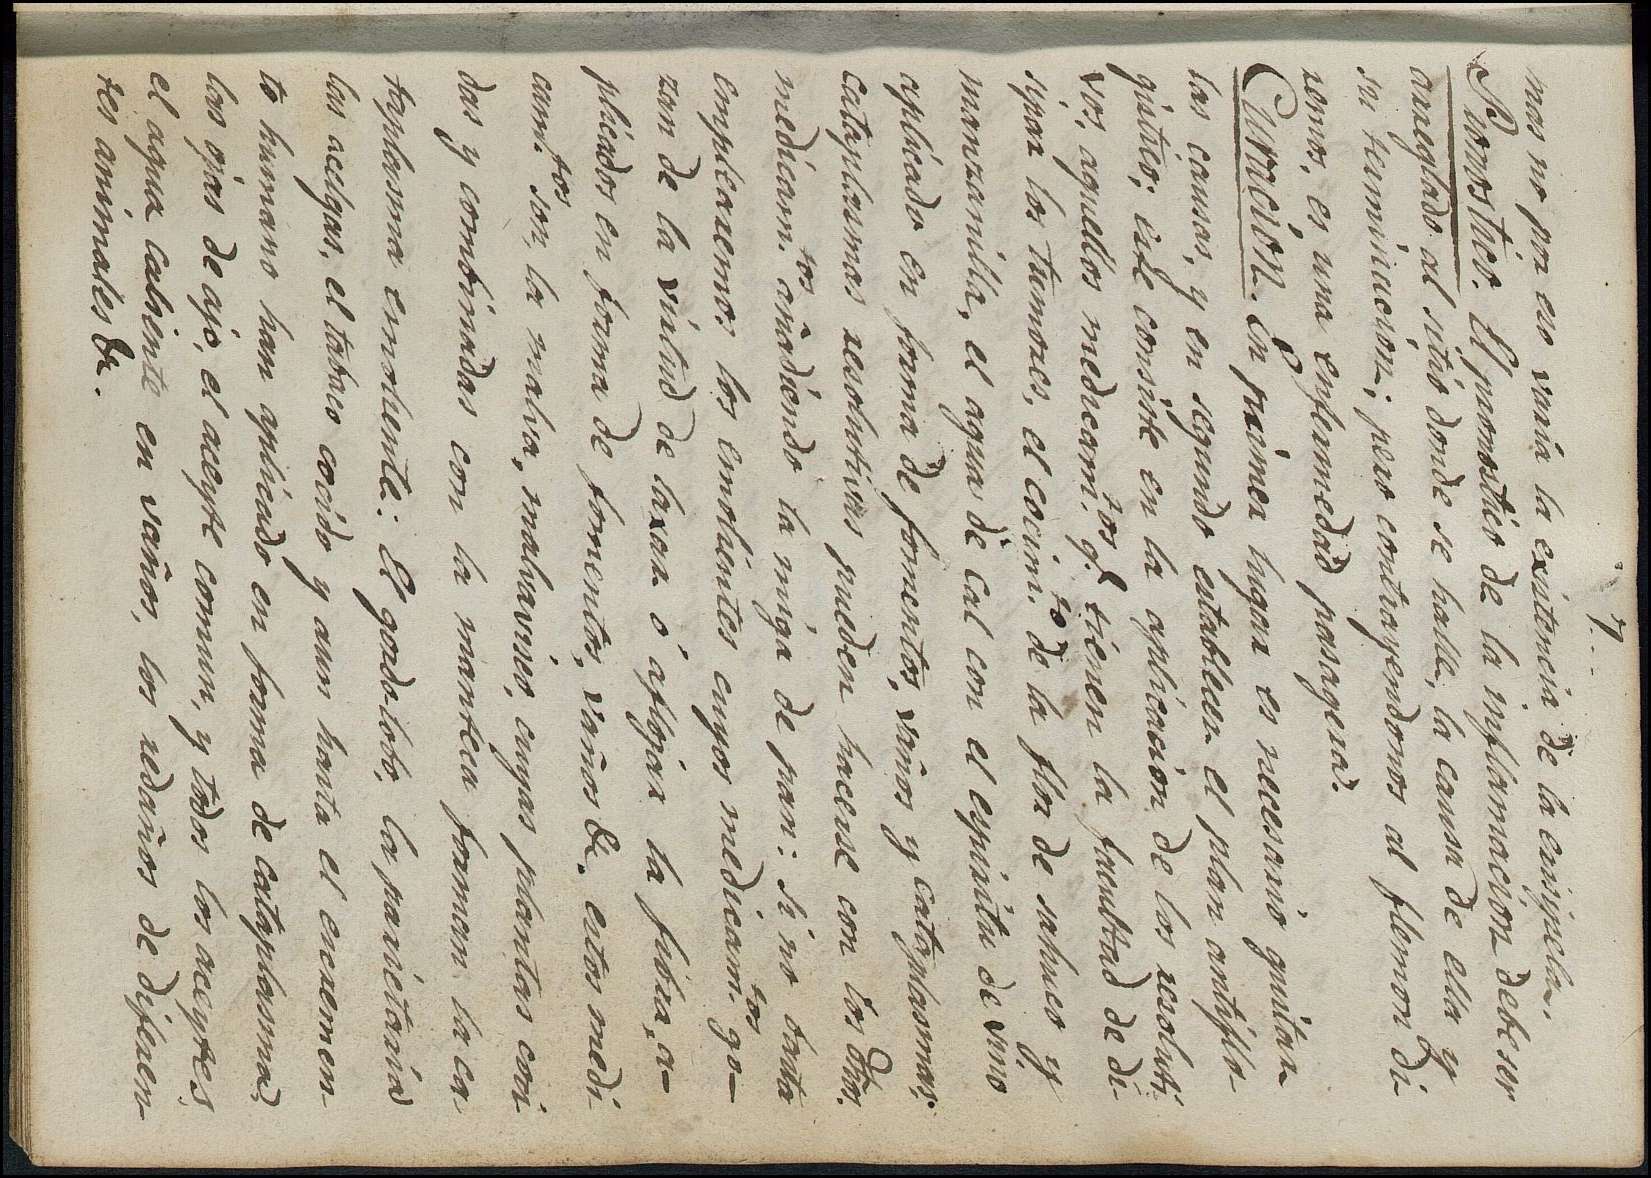 7...
mas no por eso varia la existencia de la erisipela.
Pronostico. El pronostico de la inflamacion debe ser
arreglado al sitio donde se halle, la causa de ella y
su terminacion; pero contrayendonos al flemon di
remos, es una enfermedad pasagera.
Curacion. En primer lugar es necesario quitar
las causas, y en segundo establecer el plan antiflo-
gistico; este consiste en la aplicacion de los resoluti
vos, aquellos medicam.tos q.e tienen la facultad de di-
sipar los tumores, el cocim.to de la flor de sahuco y
manzanilla, el agua de cal con el espiritu de vino
aplicado en forma de fomentos, vaños y cataplasmas;
cataplasmas resolutivas pueden hacerse con los dhos
medicam.tos añadiendo la miga de pan: Si no basta
emplearemos los emolientes cuyos medicam.tos go-
zan de la virtud de laxar ó aflojar la fibra, a-
plicados en forma de fomentos, vaños &. estos medi-
cam.tos son, la malva, malvavisco, cuyas plantas coci
das y combinadas con la manteca forman la ca
taplasma emoliente: El gordo-lobo, la parietaria
las acelgas, el tabaco cocido y aun hasta el excremen-
to humano han aplicado en forma de cataplasma,
las ojas de ajo, el aceyte comun, y todos los aceytes,
el agua caliente en vaños, los redaños de diferen-
tes animales &.